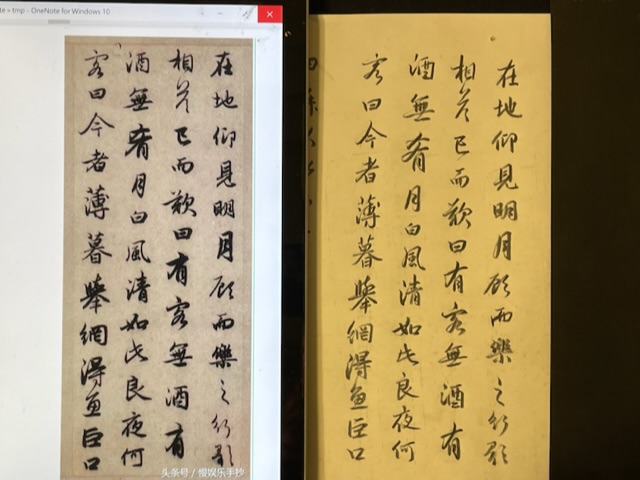 te » tmp - OneNote for Windows 10
在地仰見明月顧而樂之行歌
相答已而歎曰有客無酒有
酒無肴月白風清如此良夜何
客曰今者薄暮舉網得魚巨口
头条号 / 慢娱乐手抄
在地仰見明月顧而樂之行歌
相答已而歎曰有客無酒有
酒無肴月白風清如此良夜何
客曰今者薄暮舉網得魚巨口